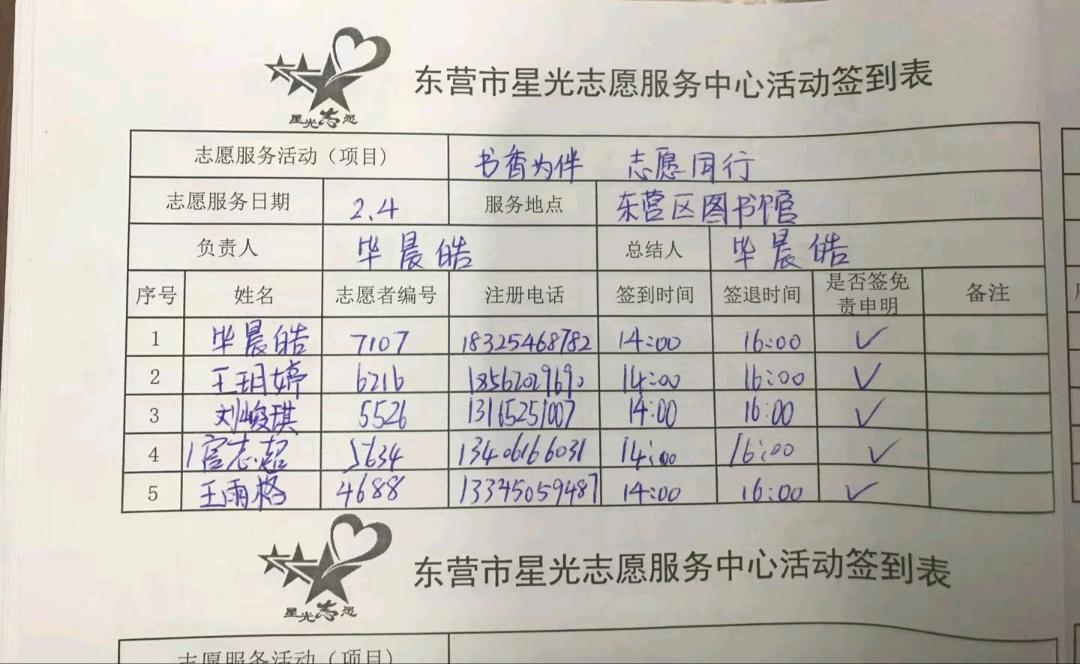 星光志愿
东营市星光志愿服务中心活动签到表
志愿服务活动（项目） 书香为伴 志愿同行
志愿服务日期 2.4 服务地点 东营区图书馆
负责人 毕晨皓 总结人 毕晨皓
序号 姓名 志愿者编号 注册电话 签到时间 签退时间 是否签免责申明 备注
1 毕晨皓 7107 18325468782 14:00 16:00 ✓
2 王玥婷 6216 18562029690 14:00 16:00 ✓
3 刘峻琪 5526 13165251007 14:00 16:00 ✓
4 志超 5634 13406166031 14:00 16:00 ✓
5 王雨格 4688 13345059487 14:00 16:00 ✓
星光志愿
东营市星光志愿服务中心活动签到表
志愿服务活动（项目）